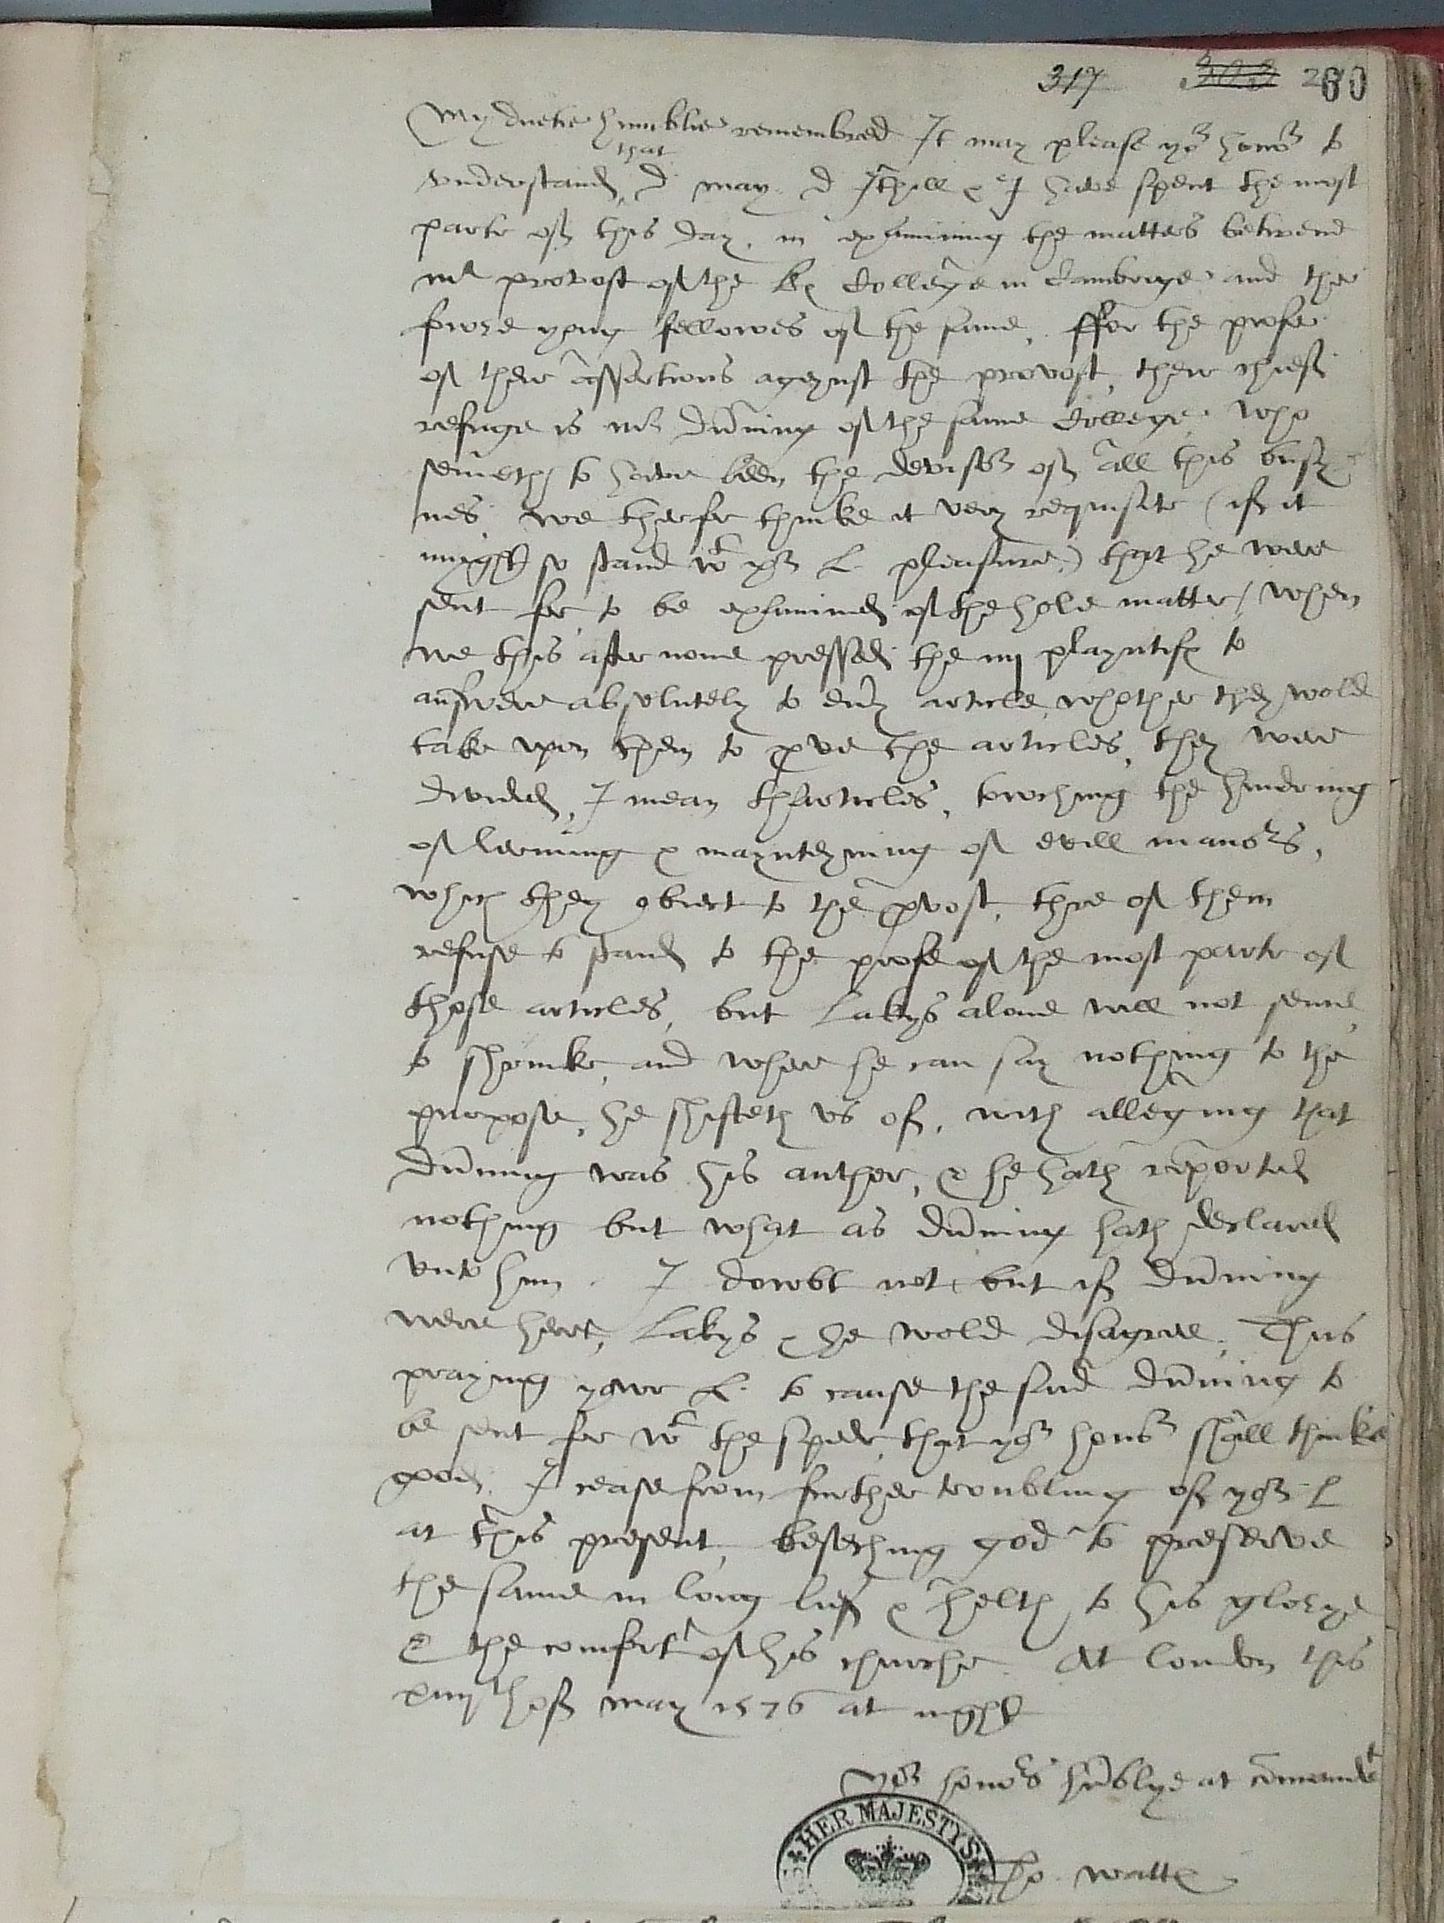 317 260
My duetie humblie remembred It may please yor honor to
that
understand, D. may. D Ithell & I have spent the most
parte of this day, in examining the matters betwene
mr provost of the k. College in Cambrige and the
fowre yong fellowes of the same. ffor the profe
of their assertions agaynst the provost, their chief
refuge is mr Duning of the same College. who
semeth to have been the devisor of all this busy
nes. we therfor thinke it very requisite (if it
might so stand wt yor L. pleasure) that he were
sent for, to be examined of the hole matter / when
we this after none pressed the iiij playntifes to
answere absolutely to every article, whether they wold
take upon them to prove the articles, they were
divided, I mean tharticles, towching the hindering
of lerning & maynteyning of evill maners,
which they obiect to the provost, thre of them
refuse to stand to the profe of the most parte of
those articles, but Lakys alone will not seme
to shrinke, and where he can say nothing to the
purpose, he shifteth us of, with alleging that
Duning was his auther, & he hath reported
nothing but what as Duning hath declared
unto him. I dowbt not but if Duning
were here, Lakys & he wold disagree. Thus
praying your L. to cause the said Duning to
be sent for wt the spede, that yor honor shall thinke
good. I cease from further troubling of yor L
at this present, beseching god to preserve
the same in long lief & helth to his glorye
& the comfort of his churche. At london this
xiiijth of may 1576 at night
Yor honors humblye at comaundt
Tho. Watts
HER MAJESTYS